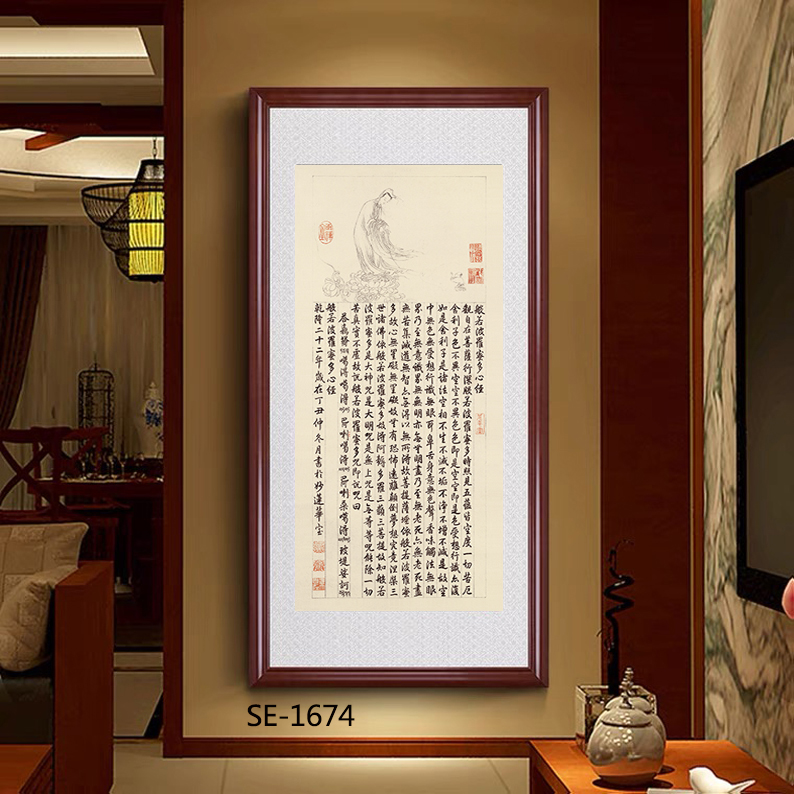 般若波羅蜜多心經
觀自在菩薩行深般若波羅蜜多時照見五蘊皆空度一切苦厄
舍利子色不異空空不異色色即是空空即是色受想行識亦復
如是舍利子是諸法空相不生不滅不垢不淨不增不減是故空
中無色無受想行識無眼耳鼻舌身意無色聲香味觸法無眼
界乃至無意識界無無明亦無無明盡乃至無老死亦無老死盡
無苦集滅道無智亦無得以無所得故菩提薩埵依般若波羅蜜
多故心無罣礙無罣礙故無有恐怖遠離顛倒夢想究竟涅槃三
世諸佛依般若波羅蜜多故得阿耨多羅三藐三菩提故知般若
波羅蜜多是大神咒是大明咒是無上咒是無等等咒能除一切
苦真實不虛故說般若波羅蜜多咒即說咒曰
般若波羅蜜多心經
乾隆二十二年歲在丁丑仲冬月書於妙蓮華室
SE-1674